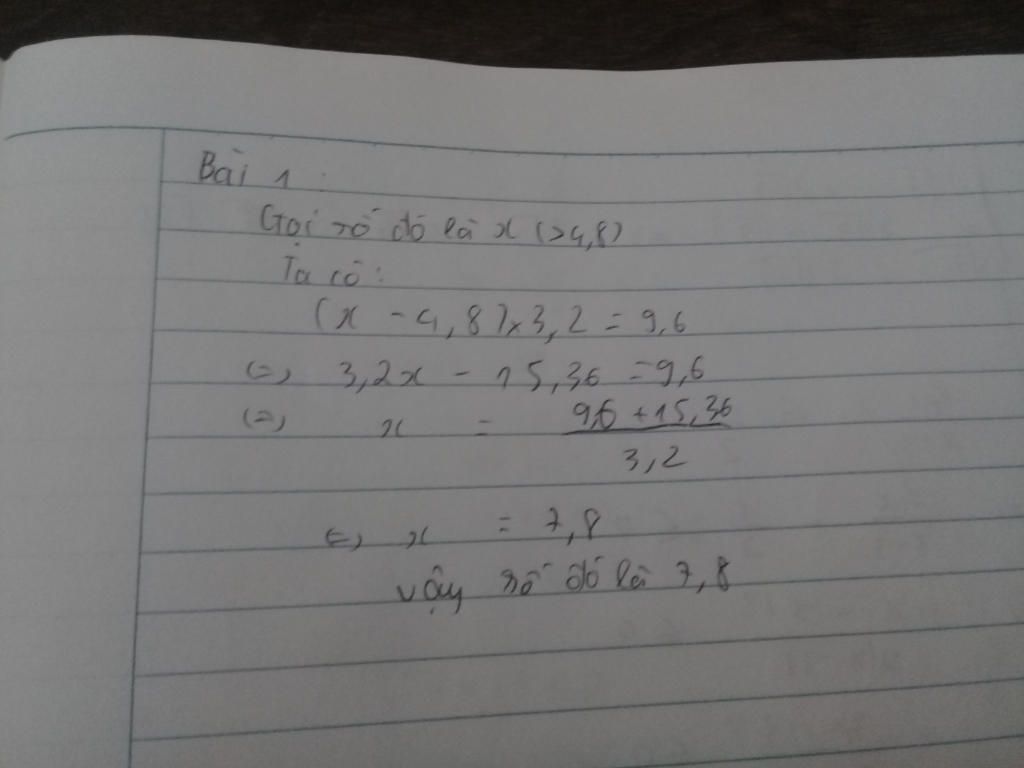 Bài 1 :
Gọi số đó là x (>4,8)
Ta có :
(x - 4,8) x 3,2 = 9,6
(=) 3,2x - 15,36 = 9,6
(=) x = \frac{9,6 + 15,36}{3,2}
(=) x = 7,8
vậy số đó là 7,8